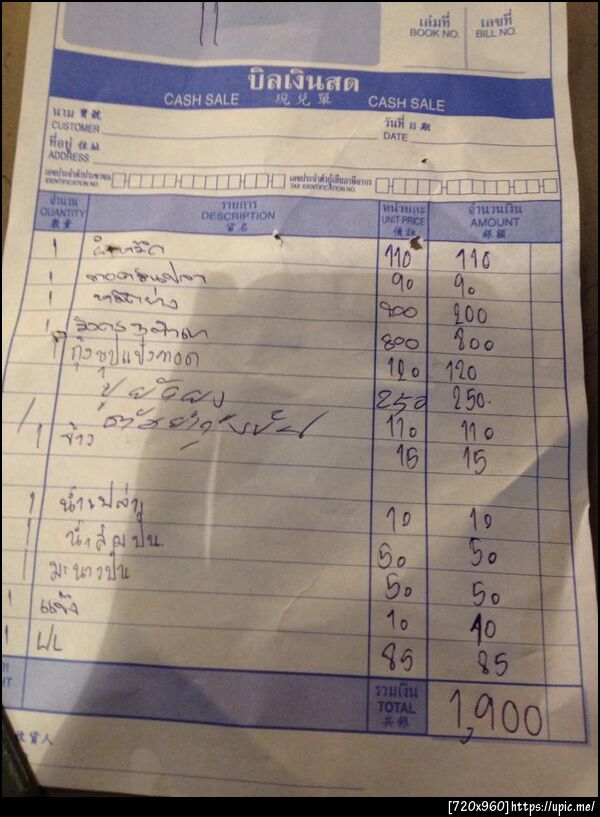 เล่มที่ เลขที่
BOOK NO. BILL NO.
บิลเงินสด
CASH SALE 現兌單 CASH SALE
นาม 寶號 วันที่ 日期
CUSTOMER DATE
ที่อยู่ 住址
ADDRESS
เลขประจำตัวประชาชน เลขประจำตัวผู้เสียภาษีอากร
IDENTIFICATION NO. TAX IDENTIFICATION NO.
จำนวน รายการ หน่วยละ จำนวนเงิน
QUANTITY DESCRIPTION UNIT PRICE AMOUNT
數量 貨名 價註 銀額
1 110 110
1 ทอดมันปลา 90 90
1 หมึกย่าง 200 200
1 800 800
1 กุ้งชุปแป้งทอด 120 120
ปู ผัดผง 250 250
110 110
1 ข้าว 15 15
1 น้ำเปล่า 10 10
น้ำส้มปั่น 50 50
มะนาวปั่น 50 50
1 แข็ง 10 10
1 85 85
รวมเงิน
TOTAL 1,900
共銀
收貨人
[720x960]https://upic.me/